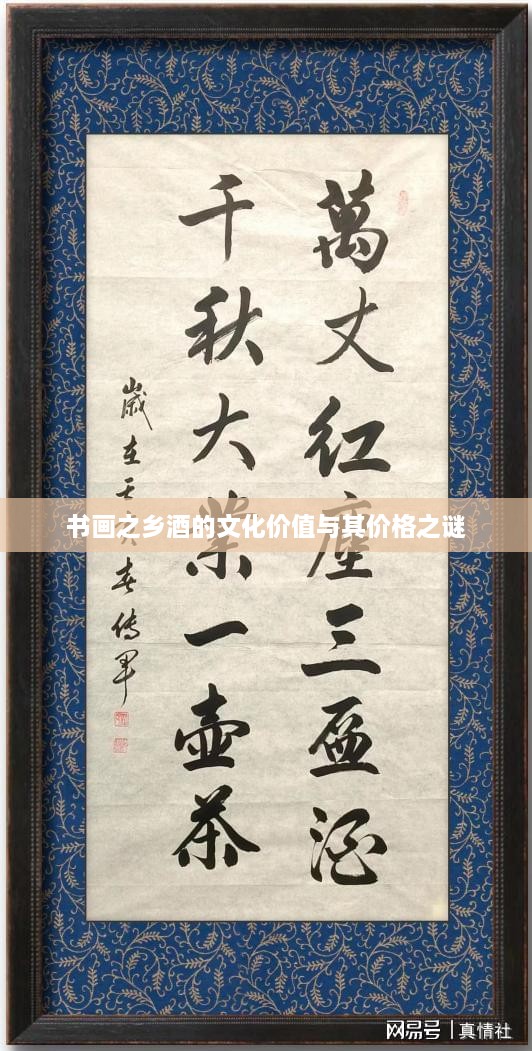 萬丈红塵三盃酒
千秋大業一壶茶
歲在
春传軍
书画之乡酒的文化价值与其价格之谜
网易号 | 真情社